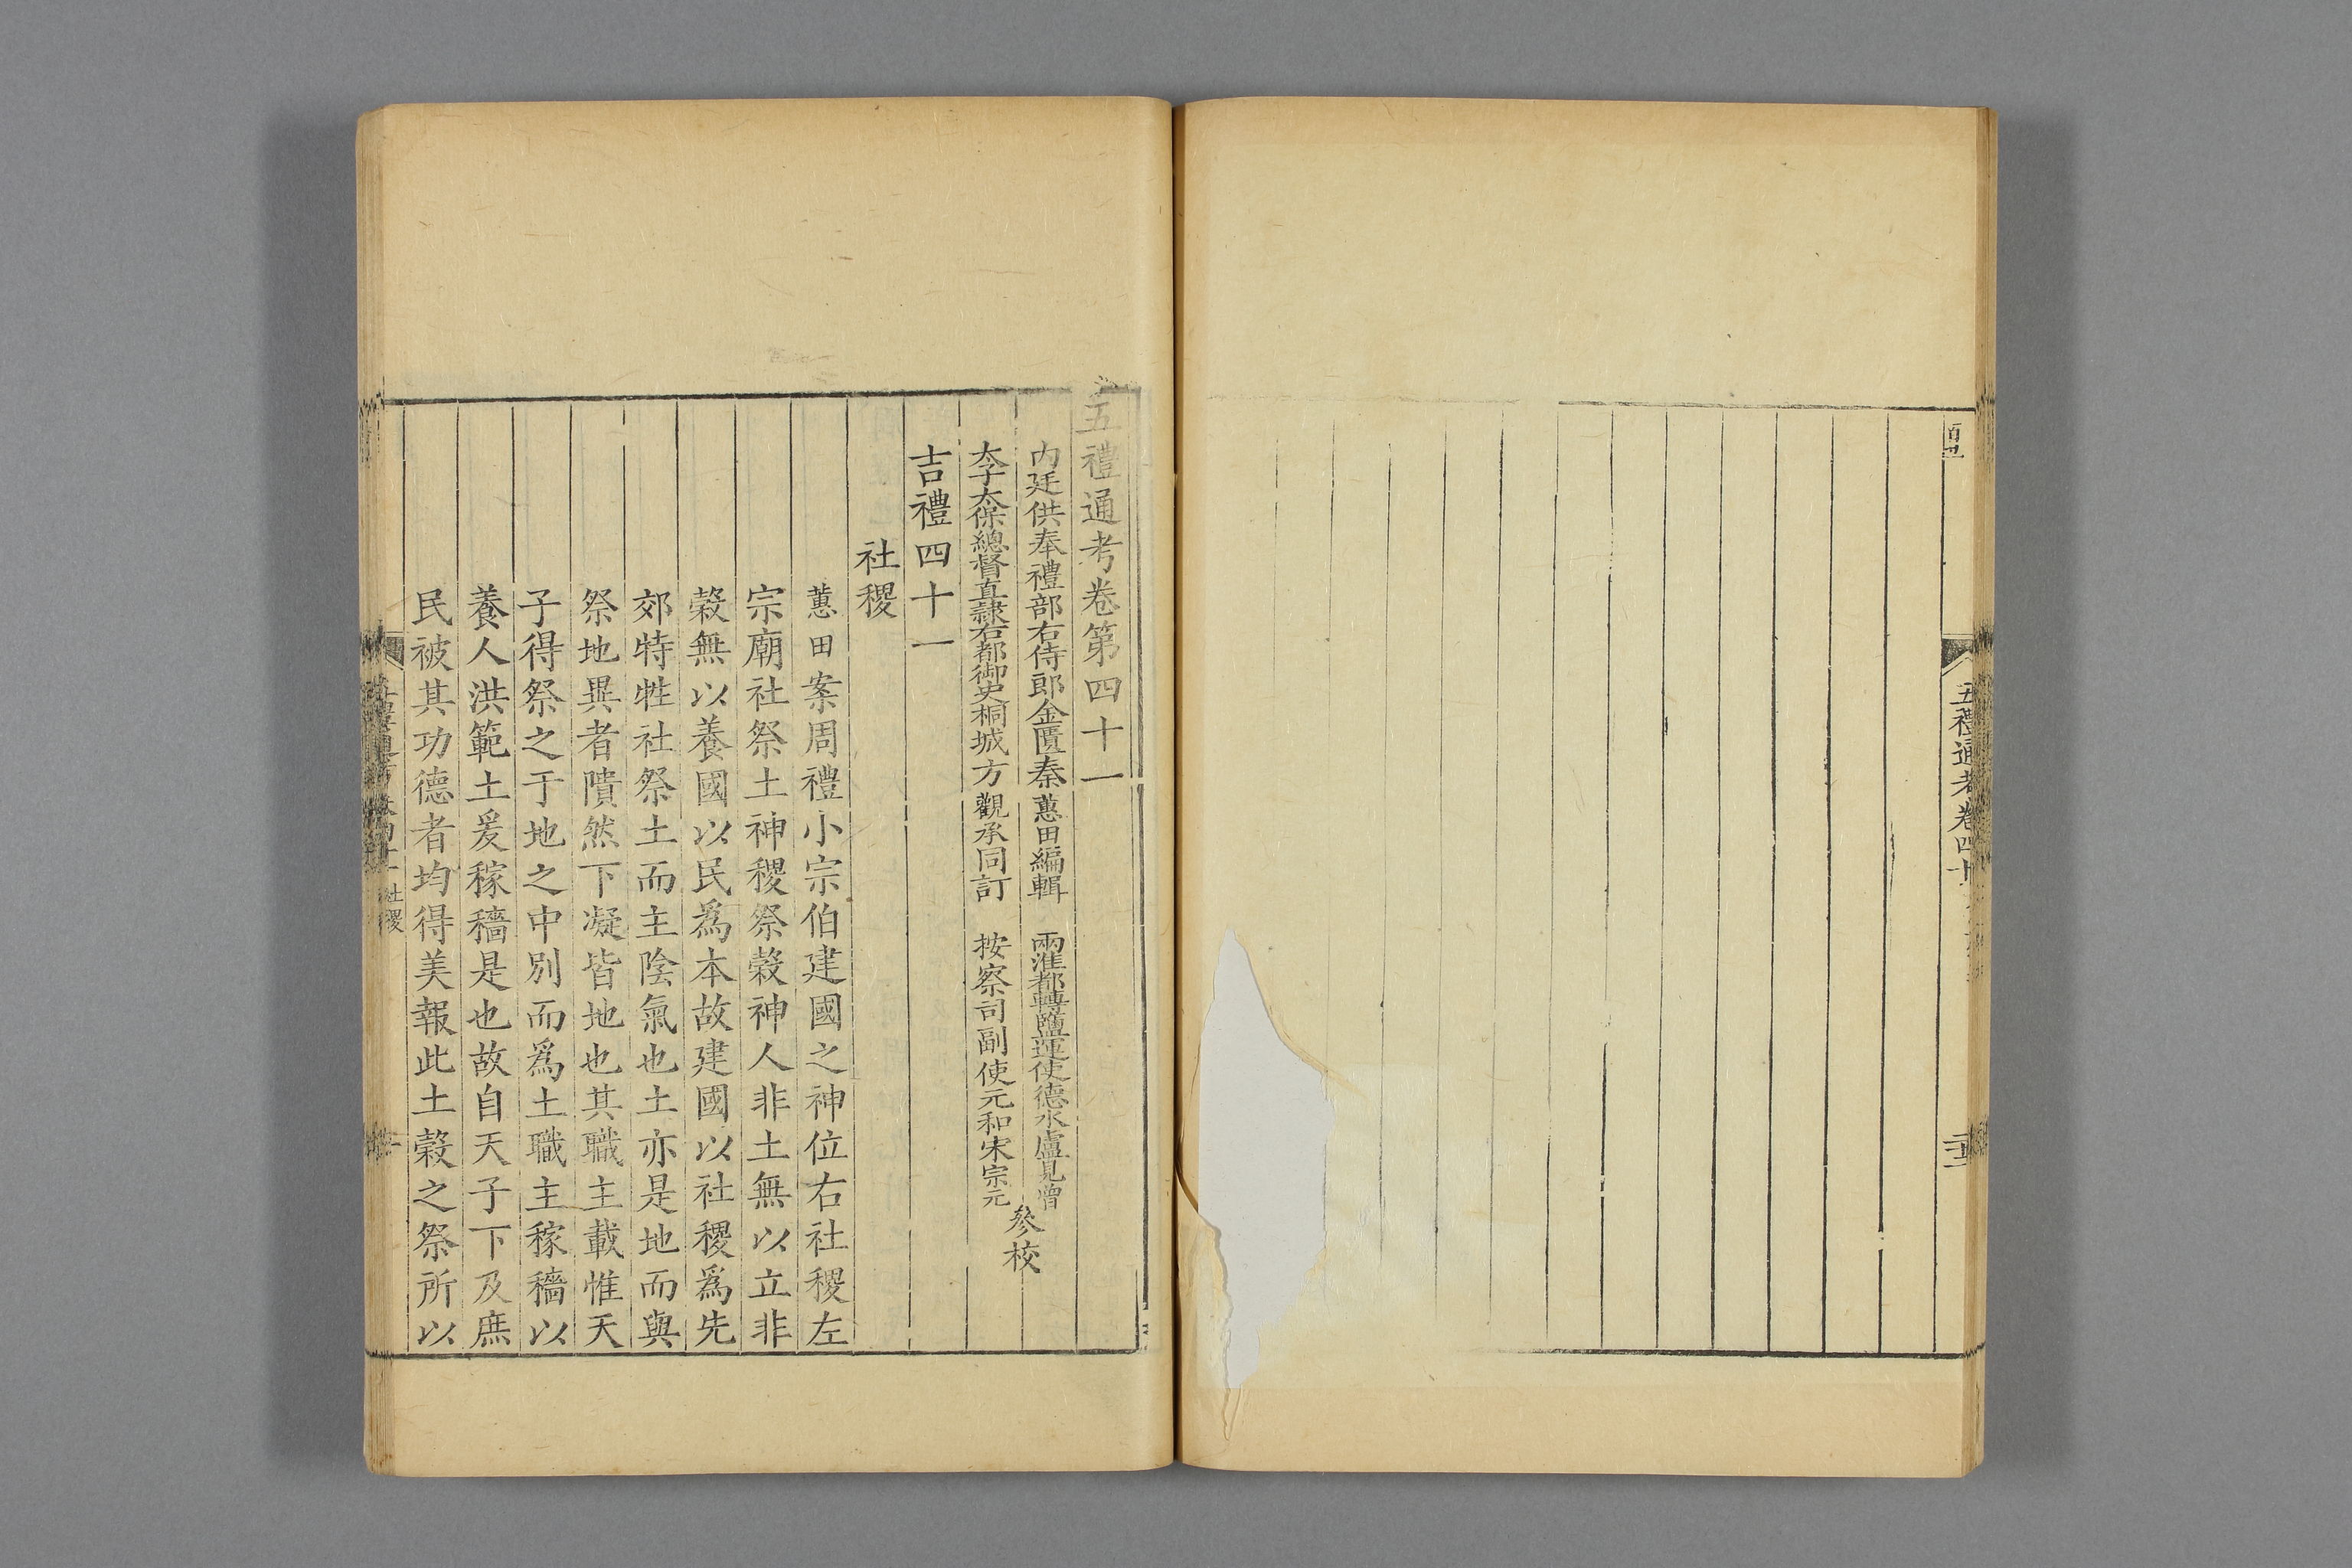 五禮通考卷四十
五禮通考卷第四十一
內廷供奉禮部右侍郎金匱秦蕙田編輯 兩淮都轉鹽運使德水盧見曾
太子太保總督直隸右都御史桐城方觀承同訂 按察司副使元和宋宗元
參校
吉禮四十一
社稷
蕙田案周禮小宗伯建國之神位右社稷左
宗廟社祭土神稷祭穀神人非土無以立非
穀無以養國以民爲本故建國以社稷爲先
郊特牲社祭土而主陰氣也土亦是地而與
祭地異者隤然下凝皆地也其職主載惟天
子得祭之于地之中別而爲土職主稼穡以
養人洪範土爰稼穡是也故自天子下及庶
民被其功德者均得美報此土穀之祭所以
社稷